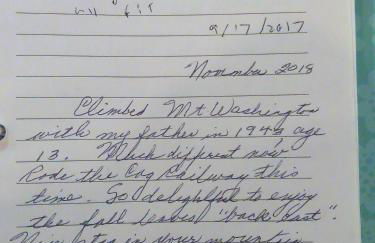 9/17/2017
Novmber 2018
Climbed Mt Washington
with my father in 1949, age
13. Much different now
Rode the Cog Railway this
time. So delightful to enjoy
the fall leaves "back east".
in your mountain